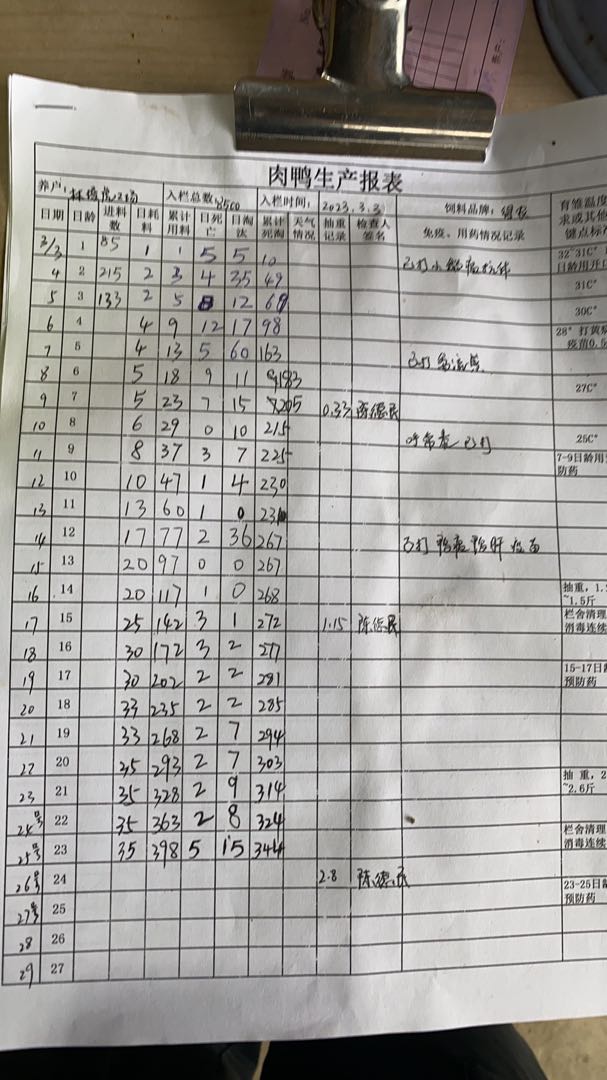 肉鸭生产报表
养户: 林 虎2场 入栏总数: 8500 入栏时间: 2023.3.3 饲料品牌: 育雏温度
日期 日龄 进料数 日耗料 累计用料 日死亡 日淘汰 累计死淘 天气情况 抽重记录 检查人签名 免疫、用药情况记录 求或其他 键点标
3/3 1 85 1 1 5 5 10 32~31C°
日龄用开口
4 2 215 2 3 4 35 49 已打小鹅瘟抗体 31C°
5 3 133 2 5 8 12 69 30C°
6 4 4 9 12 17 98 28°打黄
疫苗0.5
7 5 4 13 5 60 163 已打
8 6 5 18 9 11 183 27C°
9 7 5 23 7 15 205 0.33 陈德民
10 8 6 29 0 10 215 呼常孤 已打 25C°
11 9 8 37 3 7 225 7-9日龄用
防药
12 10 10 47 1 4 230
13 11 13 60 1 0 231
14 12 17 77 2 36 267 已打 鸭瘟鸭肝疫苗
15 13 20 97 0 0 267
16 14 20 117 1 0 268 抽重，1.
~1.5斤
17 15 25 142 3 1 272 1.15 陈德民 栏舍清理
消毒连续
18 16 30 172 3 2 277
19 17 30 202 2 2 281 15-17日龄
预防药
20 18 33 235 2 2 285
21 19 33 268 2 7 294
22 20 35 293 2 7 303
23 21 35 328 2 9 314 抽 重，2
~2.6斤
24号 22 35 363 2 8 324
25号 23 35 398 5 15 344 栏舍清理
消毒连续
26号 24 2.8 陈德民 23-25日龄
预防药
27号 25
28 26
29 27